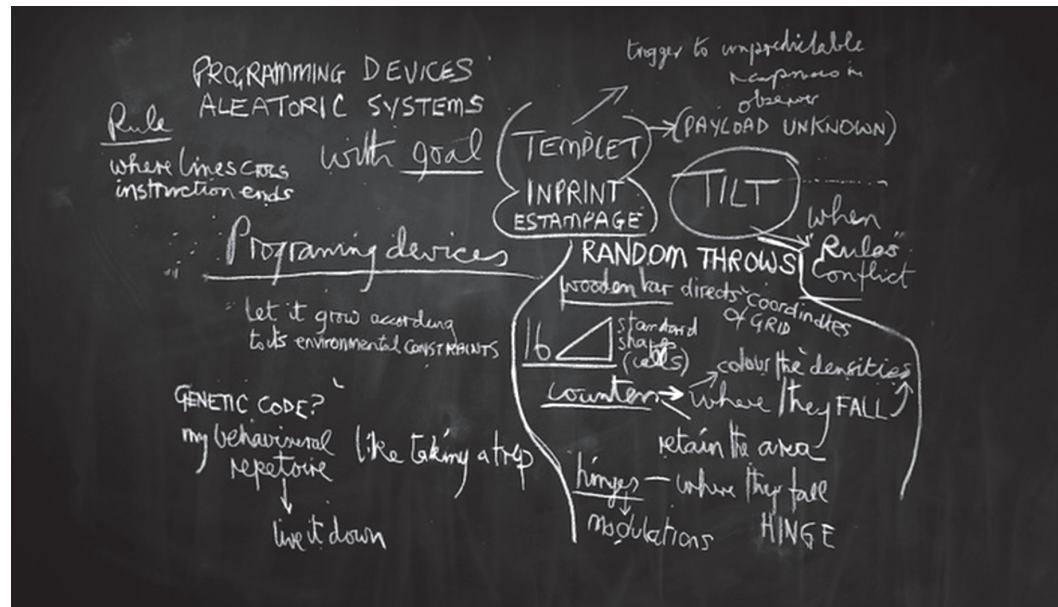 PROGRAMMING DEVICES
ALEATORIC SYSTEMS
with goal
Rule
where lines cross
instruction ends
Programing devices
Let it grow according
to its environmental CONSTRAINTS
GENETIC CODE?
my behavioural
repetoire
like taking a trip
live it down
trigger to unpredictable
responses in
observer
(PAYLOAD UNKNOWN)
TEMPLET
INPRINT
ESTAMPAGE
TILT
when
"Rules"
Conflict
RANDOM THROWS
wooden bar directs coordinates
of GRID
16 standard
shapes
(cells)
counters
colour the densities
where they FALL
retain the area
hinges — where they fall
modulations
HINGE